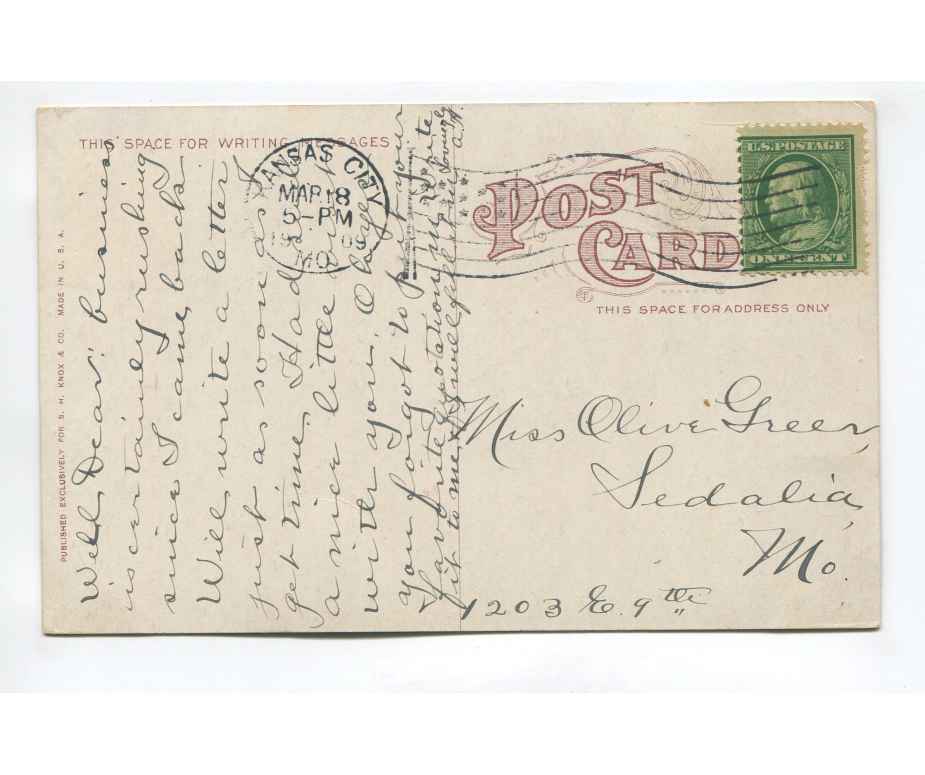 THIS SPACE FOR WRITING MESSAGES
PUBLISHED EXCLUSIVELY FOR S. H. KNOX & CO. MADE IN U. S. A.
Well Dear: business
is certainly rushing
since I came back
Will write a letter
just as soon as I
get time. Had
a nice little
with you. O
you forgot to put your
favorite
it to me,
KANSAS CITY
MAR 18
5-PM
MO.
POST
CARD
THIS SPACE FOR ADDRESS ONLY
U.S. POSTAGE
ONE CENT
Miss Olive Green
Sedalia
Mo.
1203 E. 9th